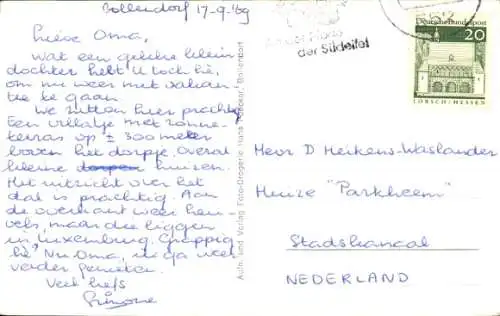 Bollendorf 17-9-69
Lieve Oma,
Wat een gekke klein
dochter hebt U toch hè,
om nu weer met vakan-
tie te gaan.
We zitten hier prachtig
Een villatje met zonne-
terras op ± 300 meter
boven het dorpje. Overal
kleine huizen.
Het uitzicht over het
dal is prachtig. Aan
de overkant weer heu-
vels, maar die liggen
in Luxemburg. Grappig
hè. Nu Oma, ik ga weer
verder genieten.
Veel liefs
Simone
Aufn. und Verlag Foto-Drogerie Hans Bollendorf
der Südeifel
Deutsche Bundespost
20
LORSCH/HESSEN
Mevr D Heikens-Waslander
Huize "Parkheem"
Stadskanaal
NEDERLAND